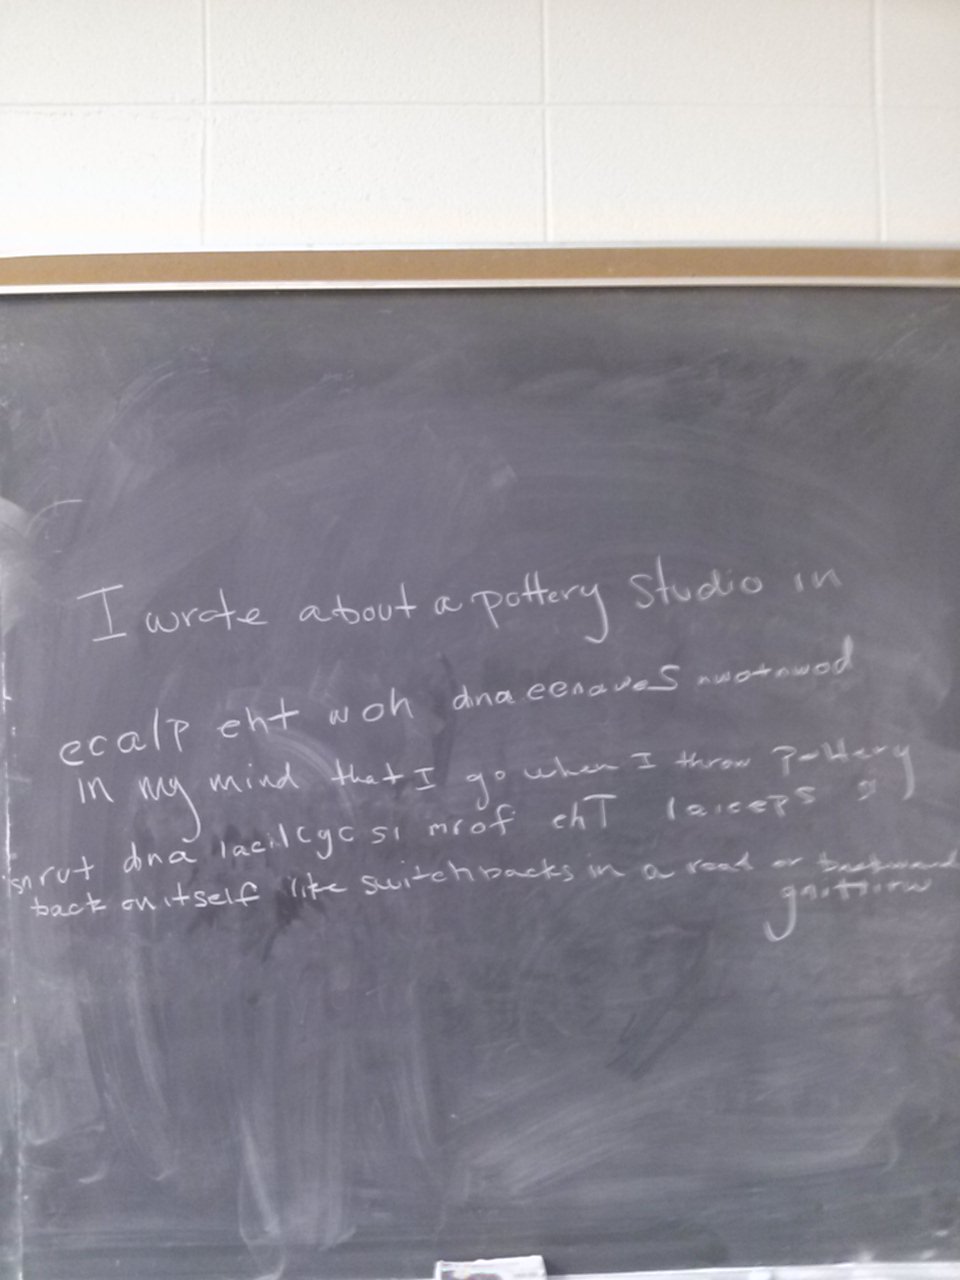 I wrote about a pottery studio in
ecalp eht woh dna eenavaS nwotnwod
in my mind that I go when I throw pottery
snrut dna lacilcyc si mrof ehT laiceps si
back on itself like switchbacks in a road or backward
gnittirw